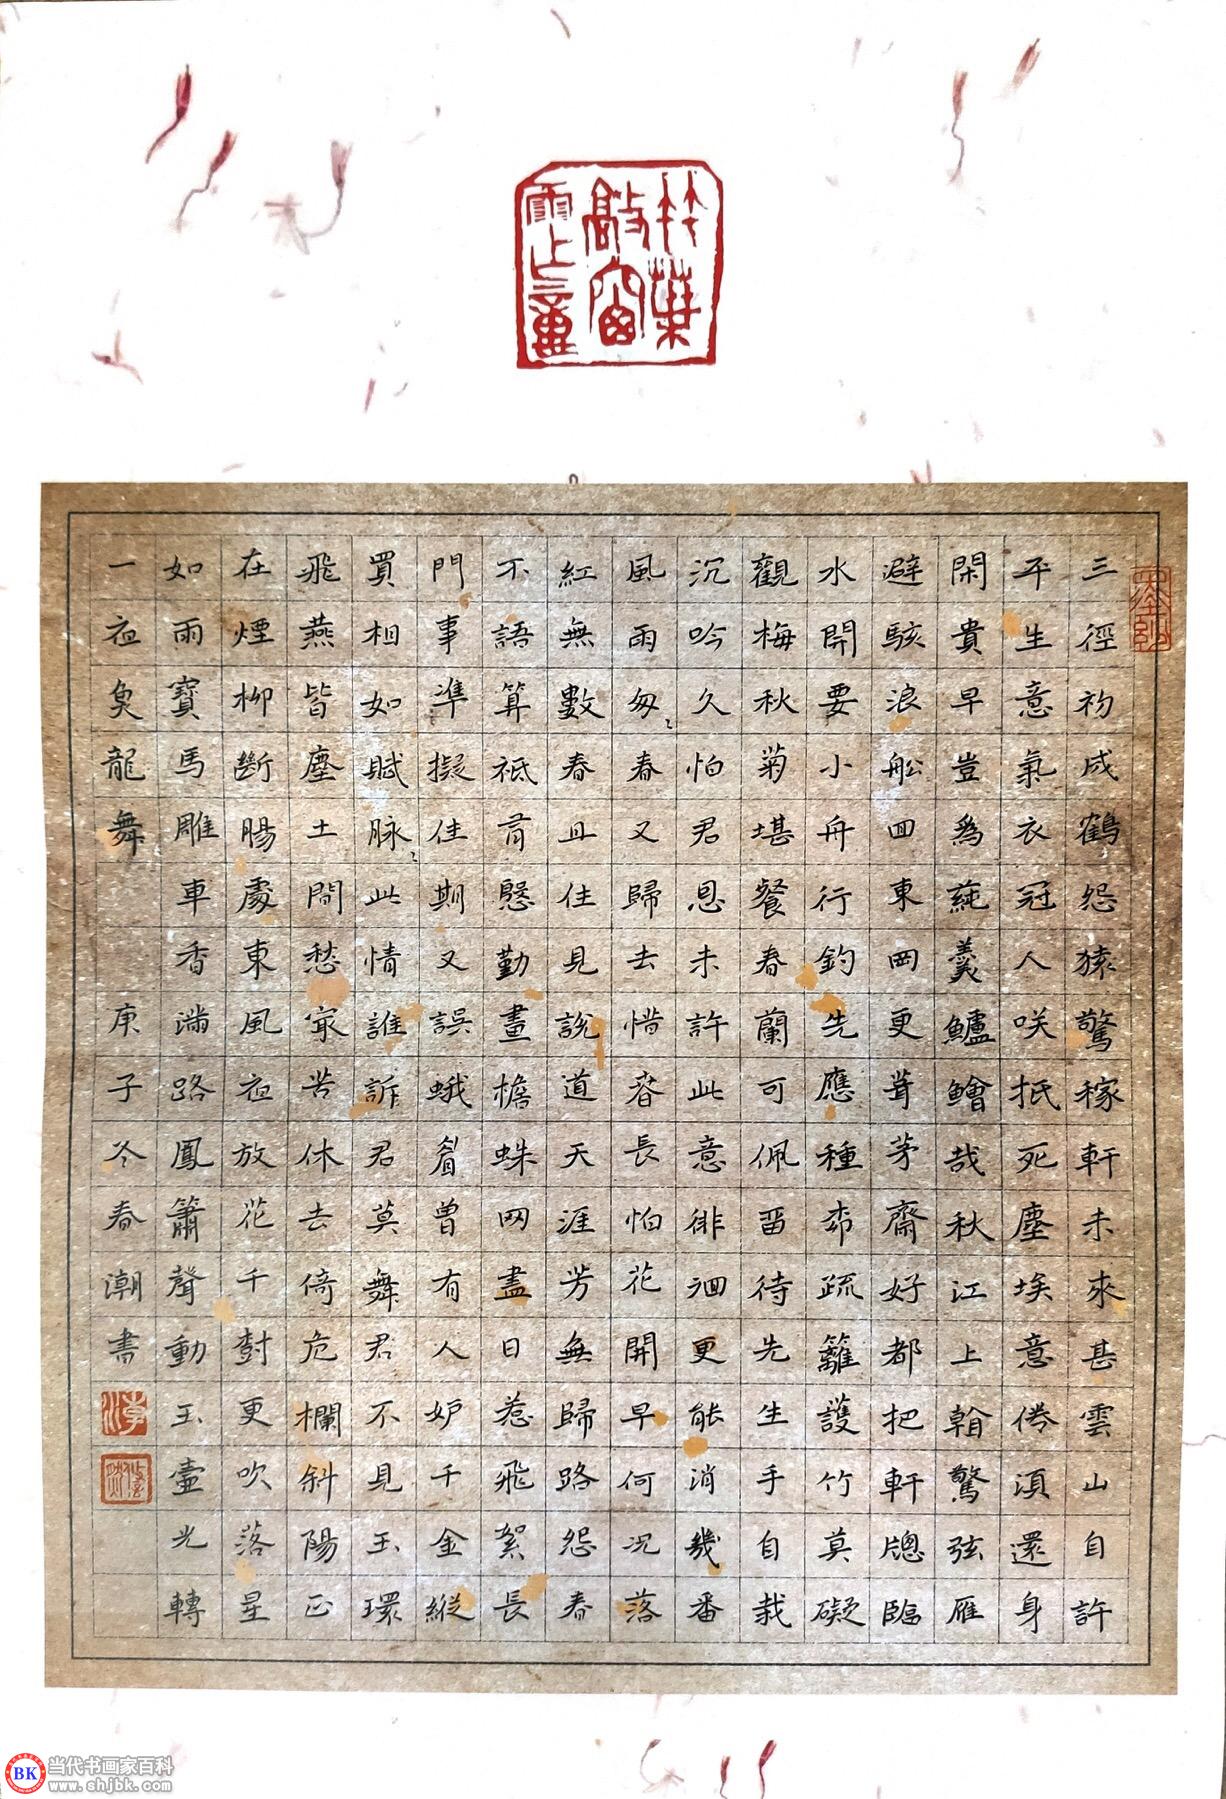 竹葉
敲窗
三徑初成鶴怨猿驚稼軒未來甚雲山自許
平生意氣衣冠人咲抵死塵埃意倦須還身
閑貴早豈爲蒓羹鱸鱠哉秋江上翰驚弦雁
避駭浪船回東岡更葺茅齋好都把軒牕臨
水開要小舟行釣先應種柳疏籬護竹莫礙
觀梅秋菊堪餐春蘭可佩留待先生手自栽
沉吟久怕君恩未許此意徘徊更能消幾番
風雨匆〻春又歸去惜春長怕花開早何况落
紅無數春且住見說道天涯芳無歸路怨春
不語算祗有慇勤畫檐蛛网盡日惹飛絮長
門事準擬佳期又誤蛾眉曾有人妒千金縱
買相如賦脉〻此情誰訴君莫舞君不見玉環
飛燕皆塵土閒愁冣苦休去倚危欄斜陽正
在煙柳斷腸處東風夜放花千樹更吹落星
如雨寶馬雕車香滿路鳳簫聲動玉壺光轉
一夜魚龍舞 庚子冬春潮書
BK 当代书画家百科
www.shjbk.com